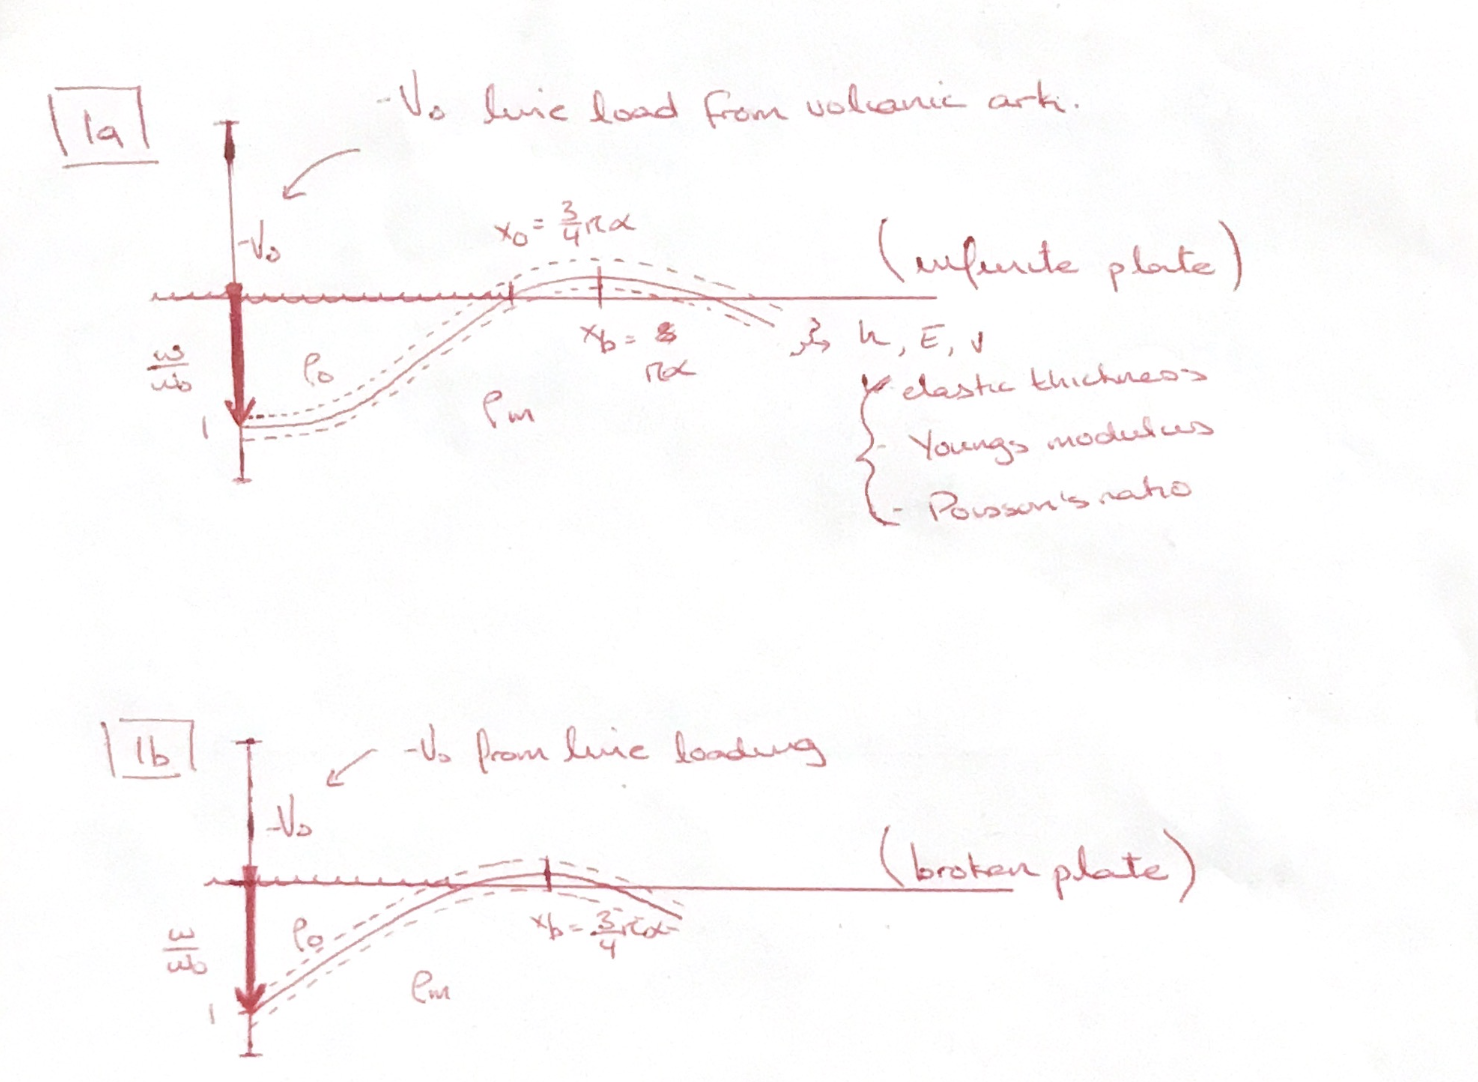 1a
-V₀ line load from volcanic ark.
-V₀
x₀ = 3/4 πα
(infinite plate)
x_b =
πα
h, E, ν
ω/ω₀
ρ₀
ρm
1
elastic thickness
- Youngs modulus
- Poisson's ratio
1b
-V₀ from line loading
-V₀
(broken plate)
x_b = 3/4 πα
ω/ω₀
ρ₀
ρm
1